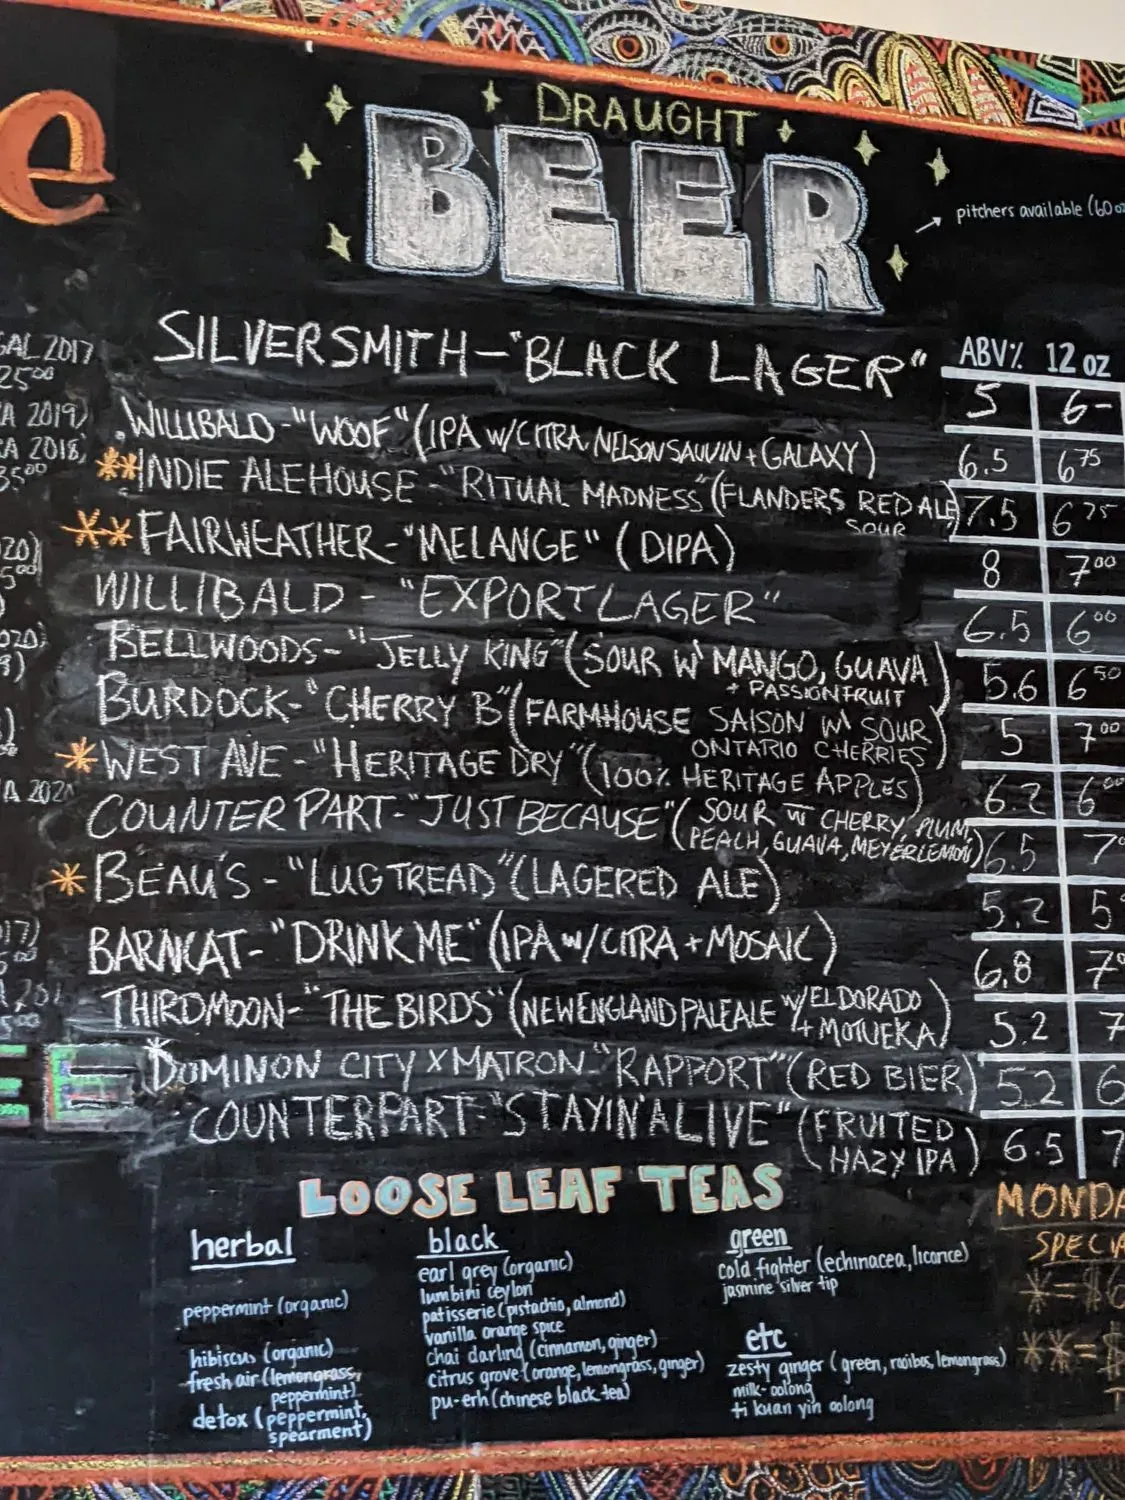 e
DRAUGHT
BEER
pitchers available (60 oz
GAL 2017
25⁰⁰
A 2019)
A 2018,
35⁰⁰
020)
020,
A 2020
017)
ABV% 12 oz
SILVERSMITH - "BLACK LAGER" 5 6-
WILLIBALD - "WOOF" (IPA w/ CITRA, NELSON SAUVIN + GALAXY) 6.5 6⁷⁵
**INDIE ALEHOUSE - "RITUAL MADNESS" (FLANDERS RED ALE) 7.5 6⁷⁵
SOUR
**FAIRWEATHER - "MELANGE" (DIPA) 8 7⁰⁰
WILLIBALD - "EXPORT LAGER" 6.5 6⁰⁰
BELLWOODS - "JELLY KING" (SOUR W/ MANGO, GUAVA 5.6 6⁵⁰
+ PASSIONFRUIT)
BURDOCK - "CHERRY B" (FARMHOUSE SAISON W/ SOUR 5 7⁰⁰
ONTARIO CHERRIES)
*WEST AVE - "HERITAGE DRY" (100% HERITAGE APPLES) 6.2 6⁰⁰
COUNTER PART - "JUST BECAUSE" (SOUR W CHERRY, PLUM, 6.5 7⁰
PEACH, GUAVA, MEYER LEMON)
*BEAU'S - "LUGTREAD" (LAGERED ALE) 5.2 5
BARNCAT - "DRINK ME" (IPA w/ CITRA + MOSAIC) 6.8 7⁰
THIRDMOON - "THE BIRDS" (NEW ENGLAND PALE ALE w/ EL DORADO 5.2 7
+ MOTUEKA)
*DOMINON CITY X MATRON - "RAPPORT" (RED BIER) 5.2 6
COUNTERPART - "STAYIN' ALIVE" (FRUITED 6.5 7
HAZY IPA)
LOOSE LEAF TEAS
herbal
peppermint (organic)
hibiscus (organic)
fresh air (lemongrass,
peppermint)
detox (peppermint,
spearment)
black
earl grey (organic)
lumbini ceylon
patisserie (pistachio, almond)
vanilla orange spice
chai darling (cinnamon, ginger)
citrus grove (orange, lemongrass, ginger)
pu-erh (chinese black tea)
green
cold fighter (echinacea, licorice)
jasmine silver tip
etc
zesty ginger (green, rooibos, lemongrass)
milk-oolong
ti kuan yin oolong
MONDA
SPECIA
*=$6
**=$